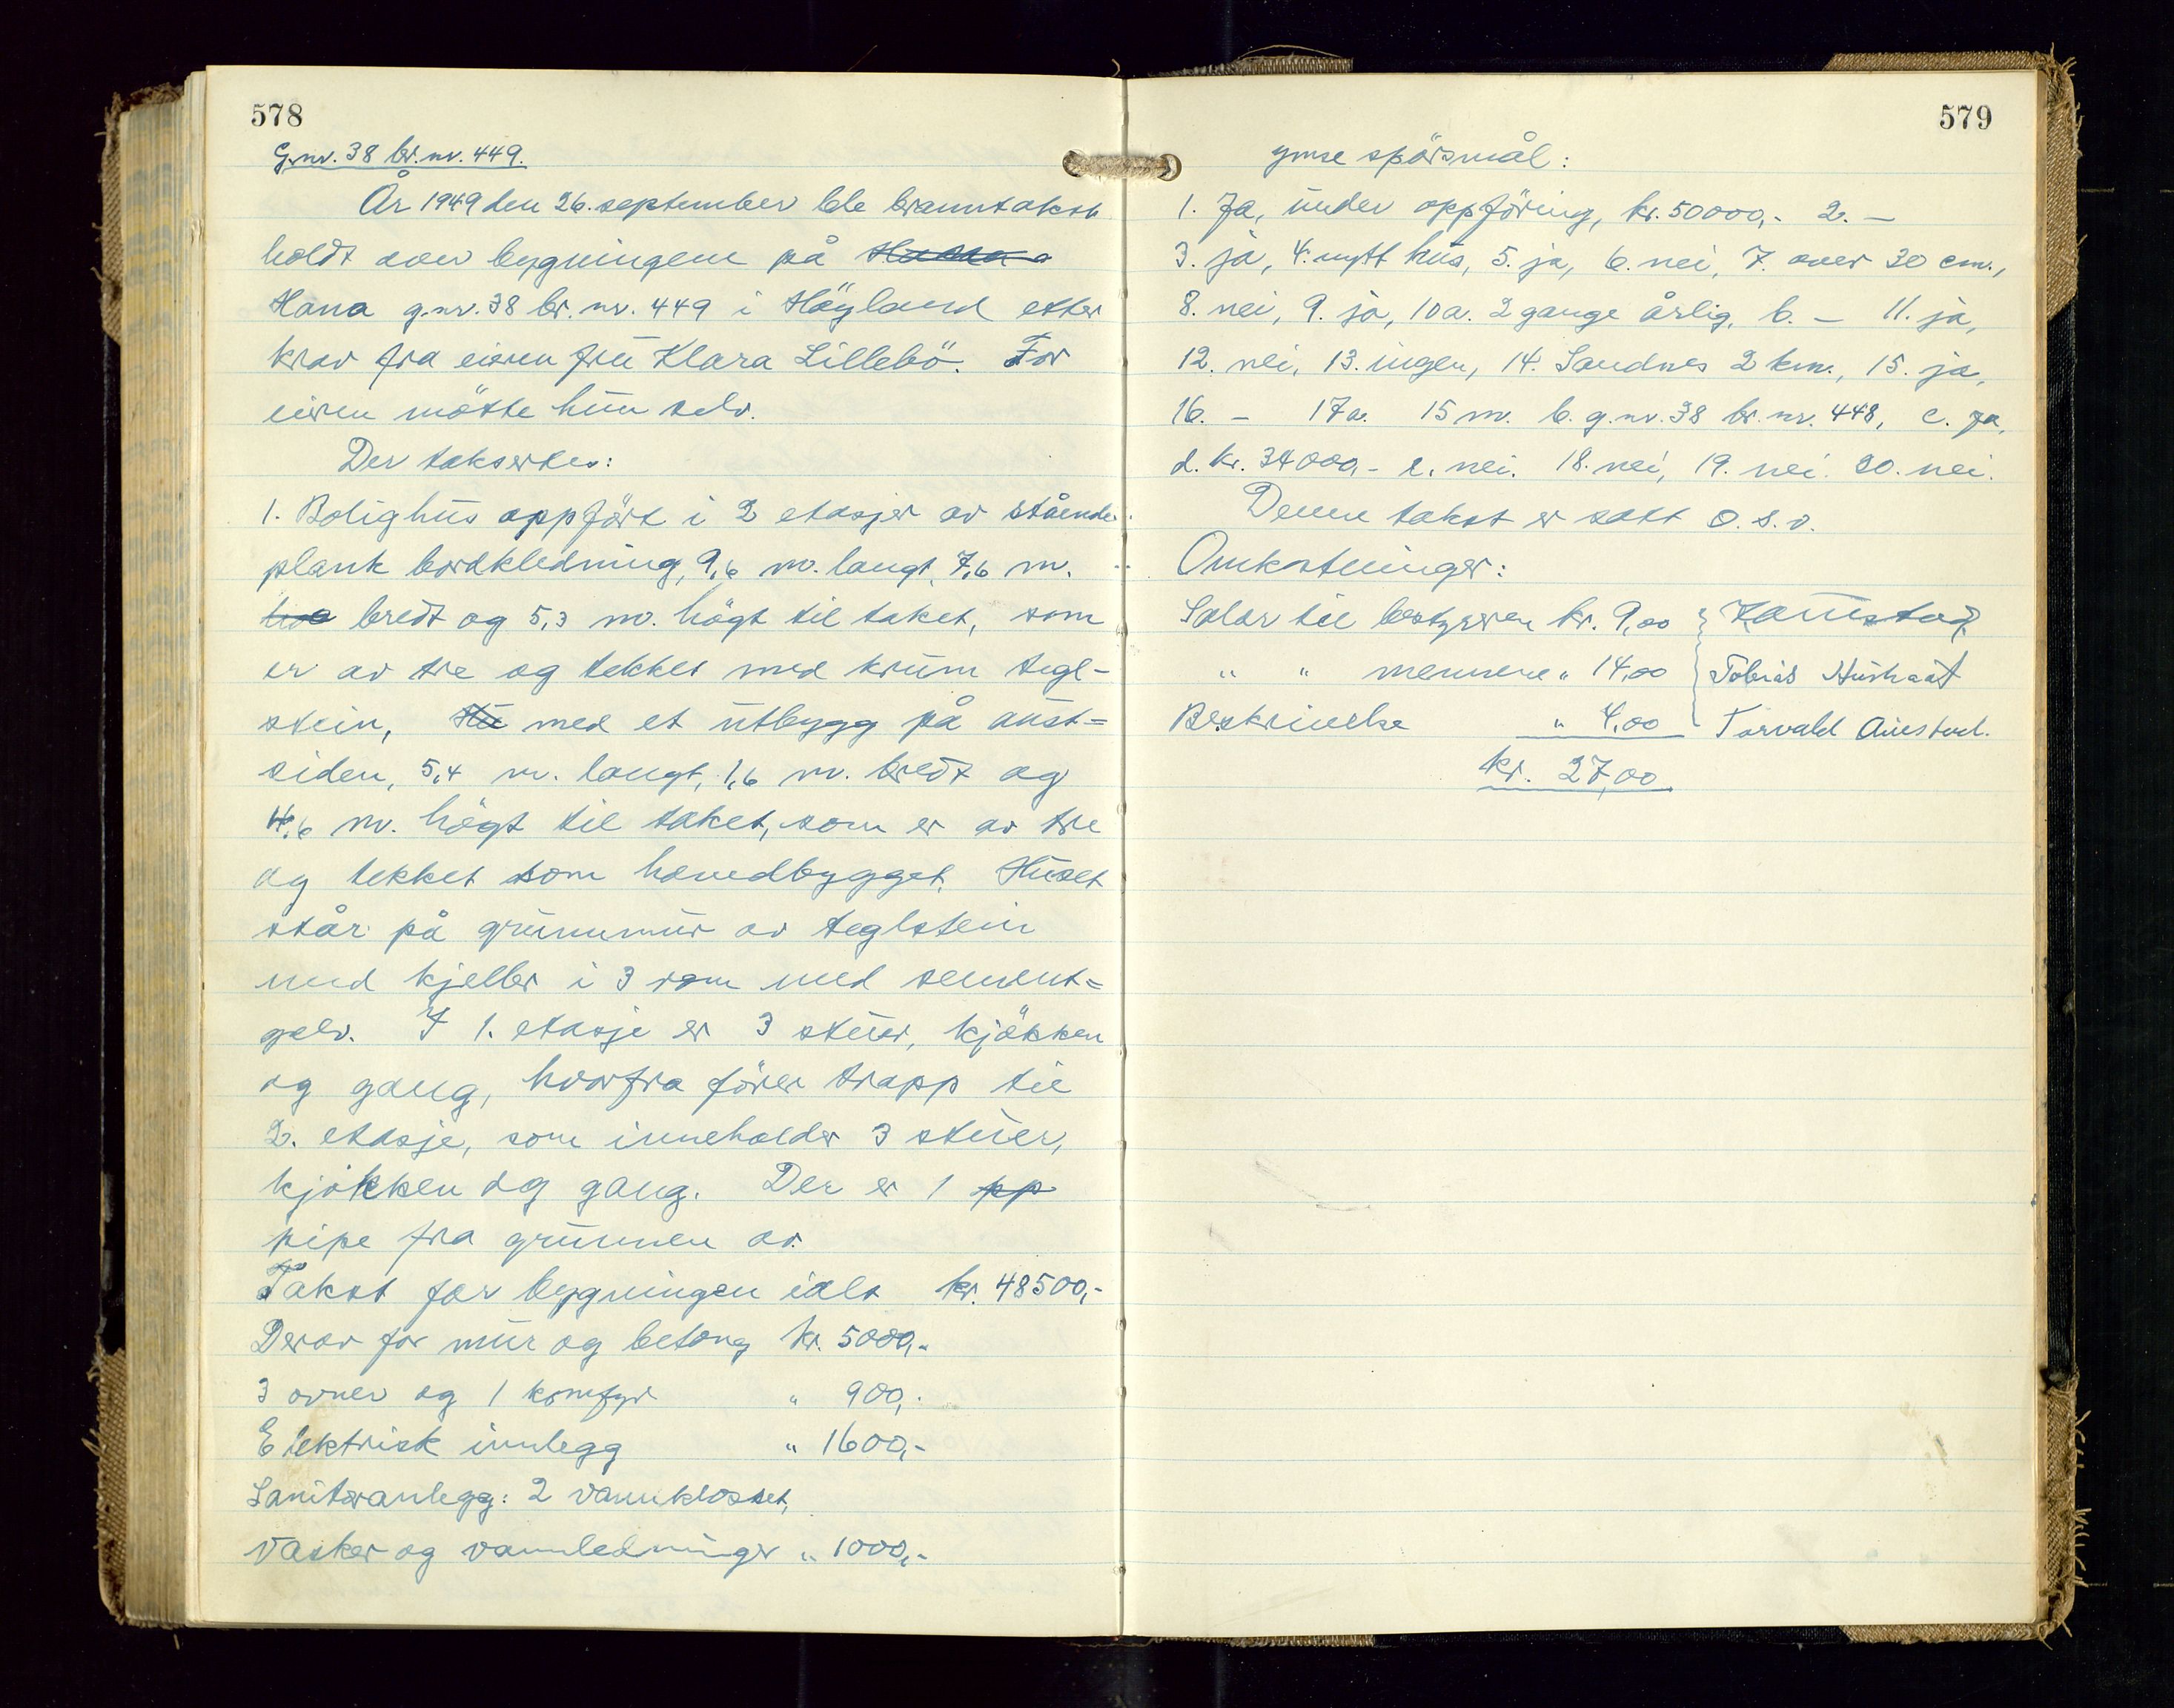 578
G.nr. 38 br.nr. 449.
År 1949 den 26. september ble branntakst
holdt over bygningene på
Hana g.nr. 38 br. nr. 449 i Höyland etter
krav fra eieren frü Klara Lillebö. For
eieren mötte hün selv.
Der taksertes:
1. Bolighüs oppfört i 2 etasjer av stående
plank bordkledning, 9,6 m. langt, 7,6 m.
bredt og 5,3 m. högt til taket, som
er av tre og tekket med krüm tegl-
stein, med et ütbygg på aüst=
siden, 5,4 m. langt, 1,6 m. bredt og
4,6 m. högt til taket, som er av tre
og tekket som hovedbygget. Hüset
står på grünnmür av teglstein
med kjeller i 3 rom med sement=
golv. I 1. etasje er 3 stüer, kjökken
og gang, hvorfra förer trapp til
2. etasje, som inneholder 3 stüer,
kjökken og gang. Der er 1
pipe fra grünnen av.
Takst for bygningen ialt kr. 48500,-
Derav for mür og betong kr. 5000,-
3 ovner og 1 komfyr " 900,-
Elektrisk innlegg " 1600,-
Sanitæranlegg: 2 vannklosset,
vasker og vannledninger " 1000,-
579
ymse spörsmål:
1. Ja, ünder oppföring, kr. 50000,- 2. -
3. ja, 4. nytt hüs, 5. ja, 6. nei, 7. over 30 cm.,
8. nei, 9. ja, 10a. 2 gange årlig, b. - 11. ja,
12. nei, 13. ingen, 14. Sandnes 2 km., 15. ja,
16. - 17a. 15 m. b. g.nr. 38 br. nr. 448, c. ja,
d. kr. 34000,- e. nei. 18. nei, 19. nei. 20. nei.
Denne takst er satt o.s.v.
Omkostninger:
Salær til bestyreren kr. 9,00
" " mennene " 14,00 Tobias
Beskrivelse " 4,00 Torvald Aüestad.
kr. 27,00